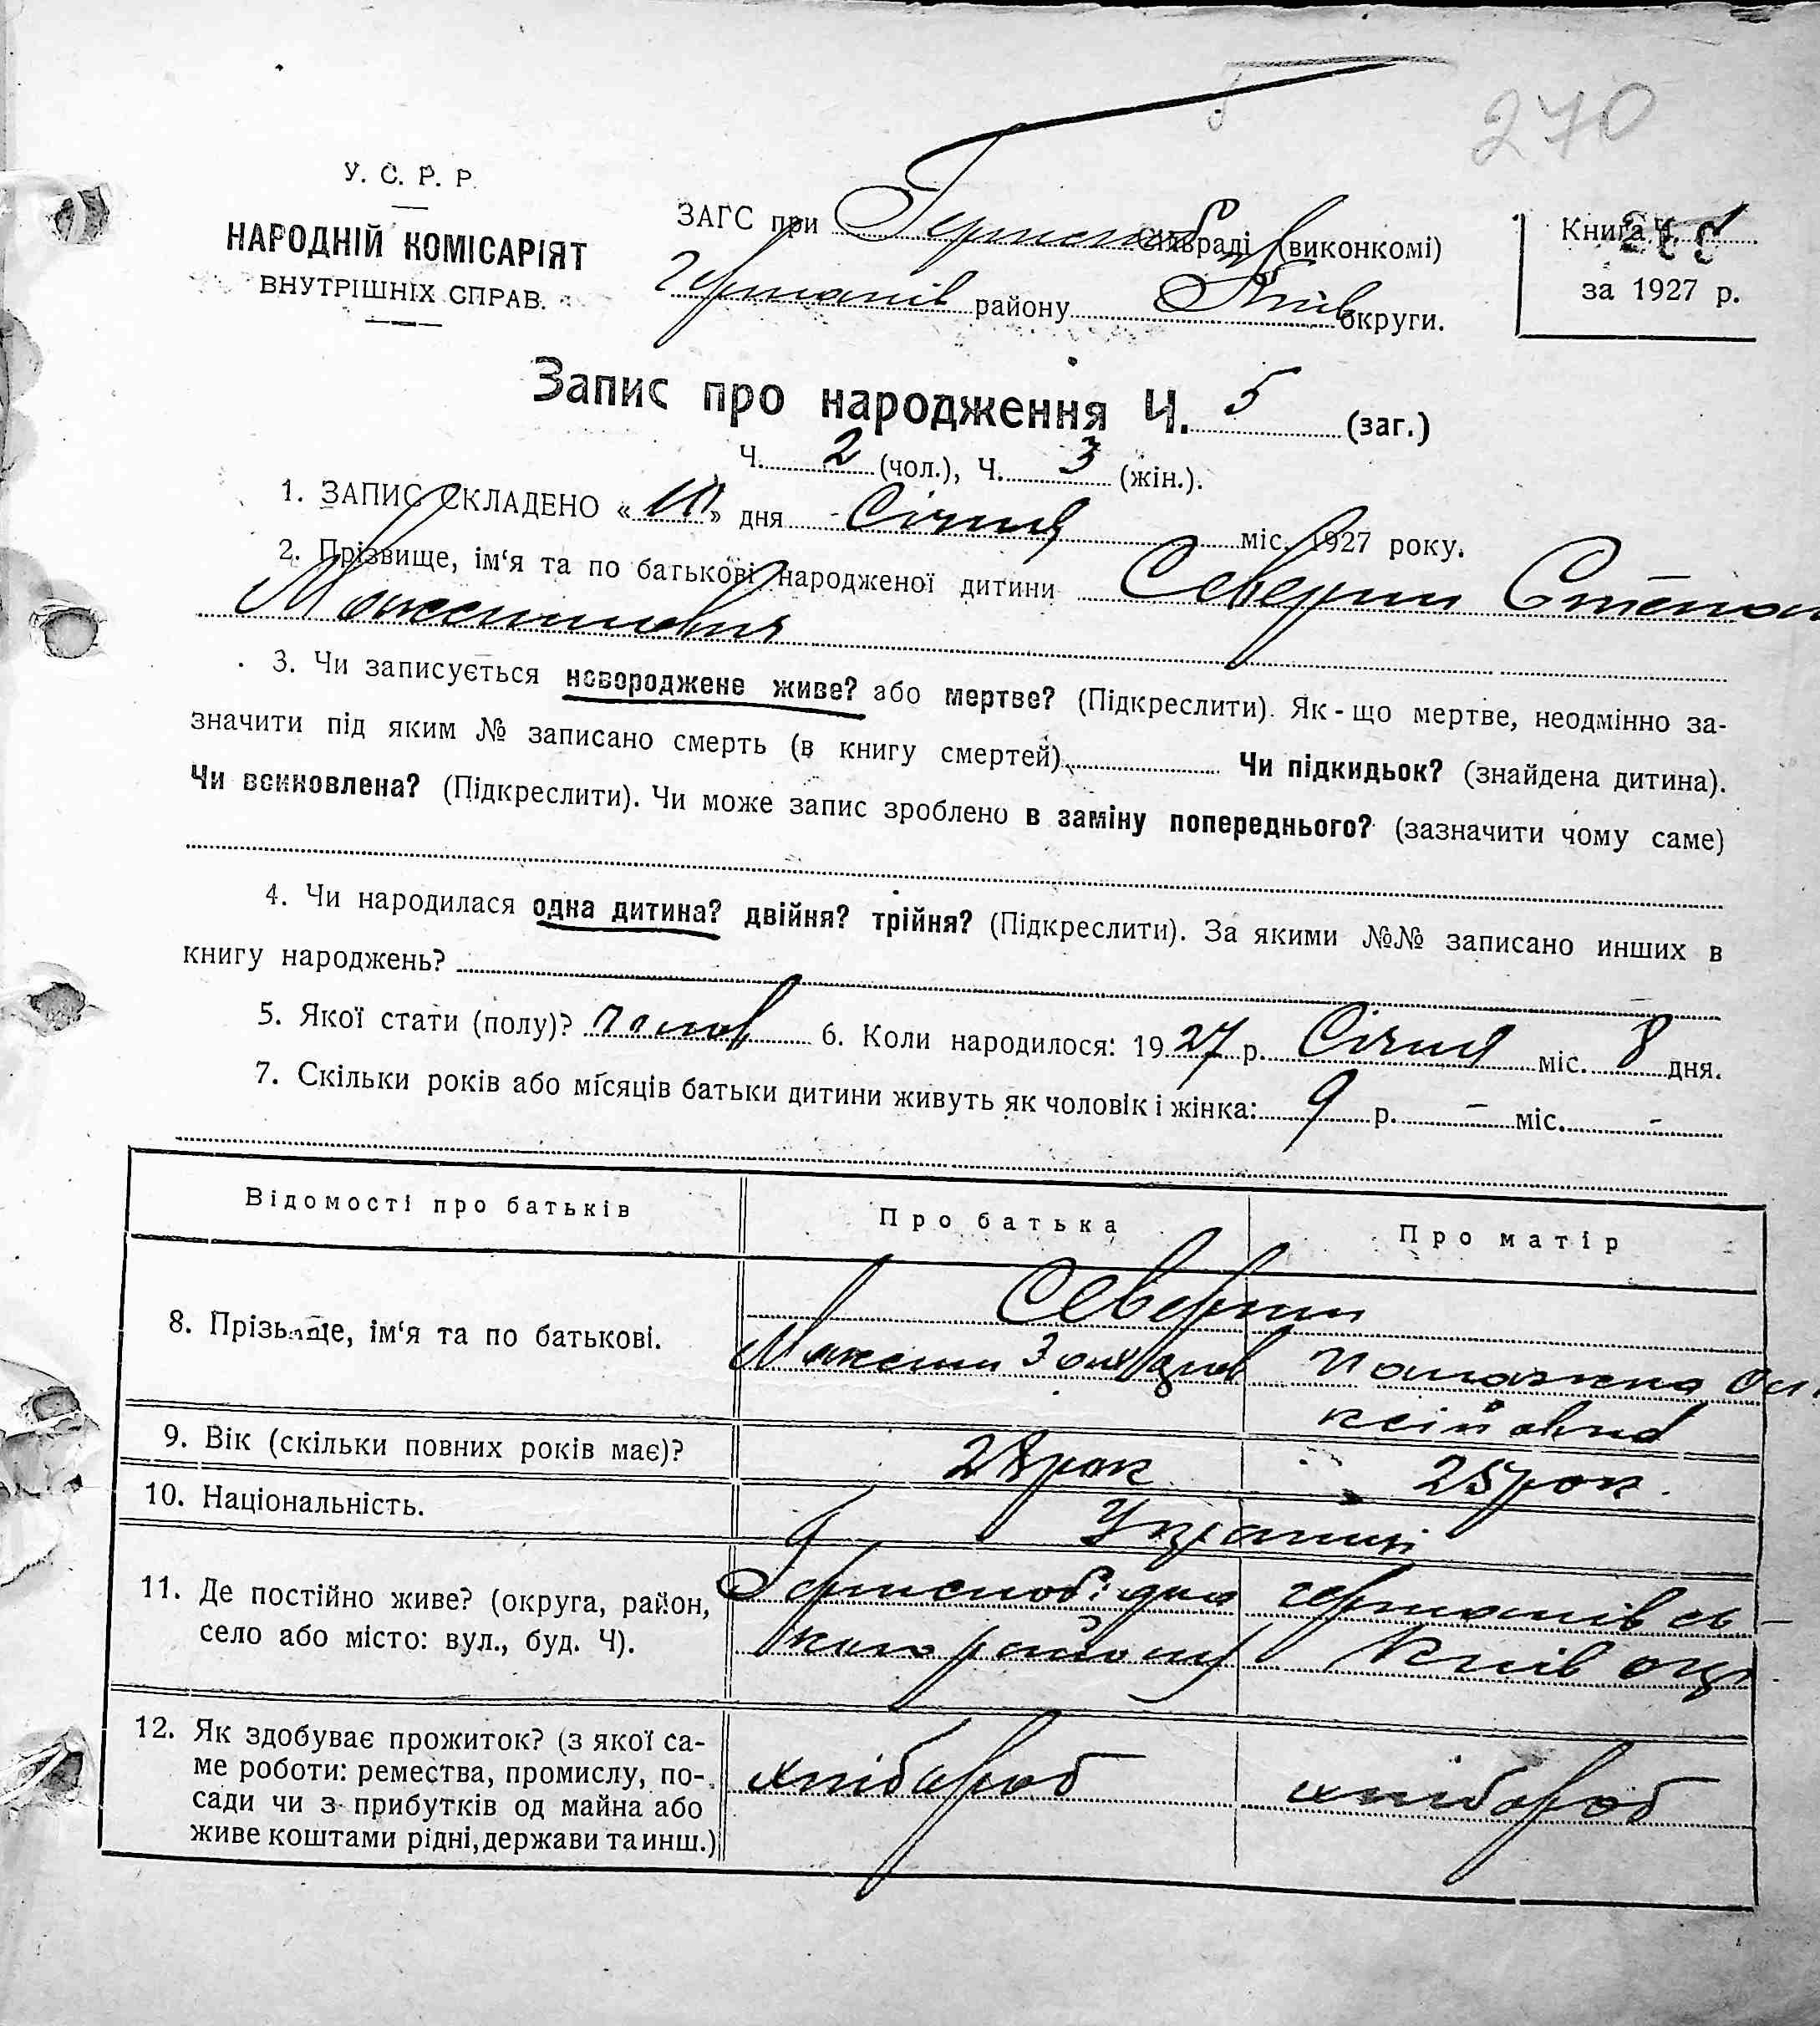 270
У. С. Р. Р.
НАРОДНІЙ КОМІСАРІЯТ
ВНУТРІШНІХ СПРАВ.
ЗАГС при сільраді (виконкомі)
Германів району Київ округи.
Книга Ч.
за 1927 р.
Запис про народження Ч. 5 (заг.)
Ч. 2 (чол.), Ч. 3 (жін.).
1. ЗАПИС СКЛАДЕНО « » дня Січня міс. 1927 року.
2. Прізвище, ім‘я та по батькові народженої дитини Северин Степан
Максимович
3. Чи записується новороджене живе? або мертве? (Підкреслити). Як-що мертве, неодмінно за-
значити під яким № записано смерть (в книгу смертей) Чи підкидьок? (знайдена дитина).
Чи всиновлена? (Підкреслити). Чи може запис зроблено в заміну попереднього? (зазначити чому саме)
4. Чи народилася одна дитина? двійня? трійня? (Підкреслити). За якими №№ записано инших в
книгу народжень?
5. Якої стати (полу)? чолов 6. Коли народилося: 1927 р. Січня міс. 8 дня.
7. Скільки років або місяців батьки дитини живуть як чоловік і жінка: 9 р. - міс. -
Відомості про батьків Про батька Про матір
8. Прізвище, ім‘я та по батькові. Северин
Максим Захаров
ксіївна
9. Вік (скільки повних років має)? 28 рок 25 рок.
10. Національність. Україці
11. Де постійно живе? (округа, район, Германівсь-
село або місто: вул., буд. Ч). кого району Київ окр
12. Як здобуває прожиток? (з якої са-
ме роботи: ремества, промислу, по- хлібороб хлібороб
сади чи з прибутків од майна або
живе коштами рідні, держави та инш.)